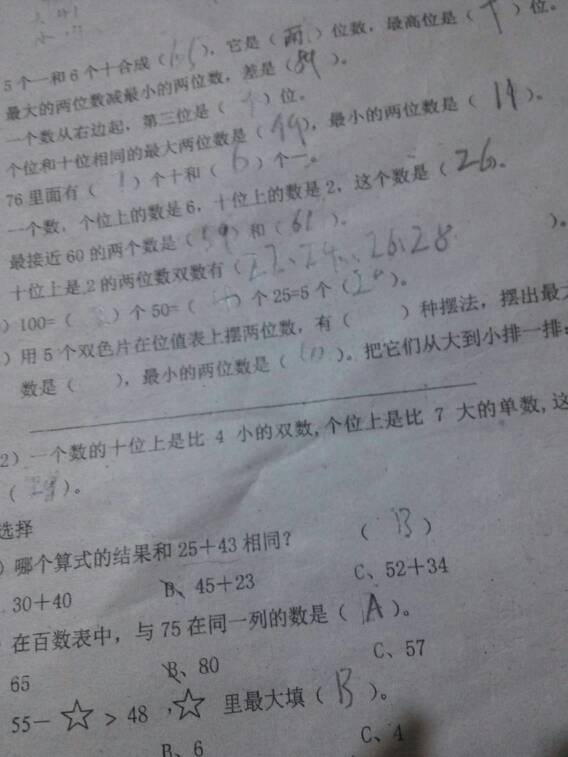 5个一和6个十合成（65），它是（两）位数，最高位是（十）位。
最大的两位数减最小的两位数，差是（89）。
一个数从右边起，第三位是（ ）位。
个位和十位相同的最大两位数是（99），最小的两位数是（11）。
76里面有（ ）个十和（6）个一。
一个数，个位上的数是6，十位上的数是2，这个数是（26）。
最接近60的两个数是（59）和（61）。
十位上是2的两位数双数有（22、24、26、28 ）。
）100=（ ）个50=（ ）个25=5个（20）。
）用5个双色片在位值表上摆两位数，有（ ）种摆法，摆出最
数是（ ），最小的两位数是（ ）。把它们从大到小排一排：
2）一个数的十位上是比 4 小的双数，个位上是比 7 大的单数，这
（ ）。
选择
）哪个算式的结果和25＋43相同？（B）
30＋40 B、45＋23 C、52＋34
在百数表中，与75在同一列的数是（A）。
65 B、80 C、57
55－☆＞48，☆里最大填（B）。
B、6 C、4